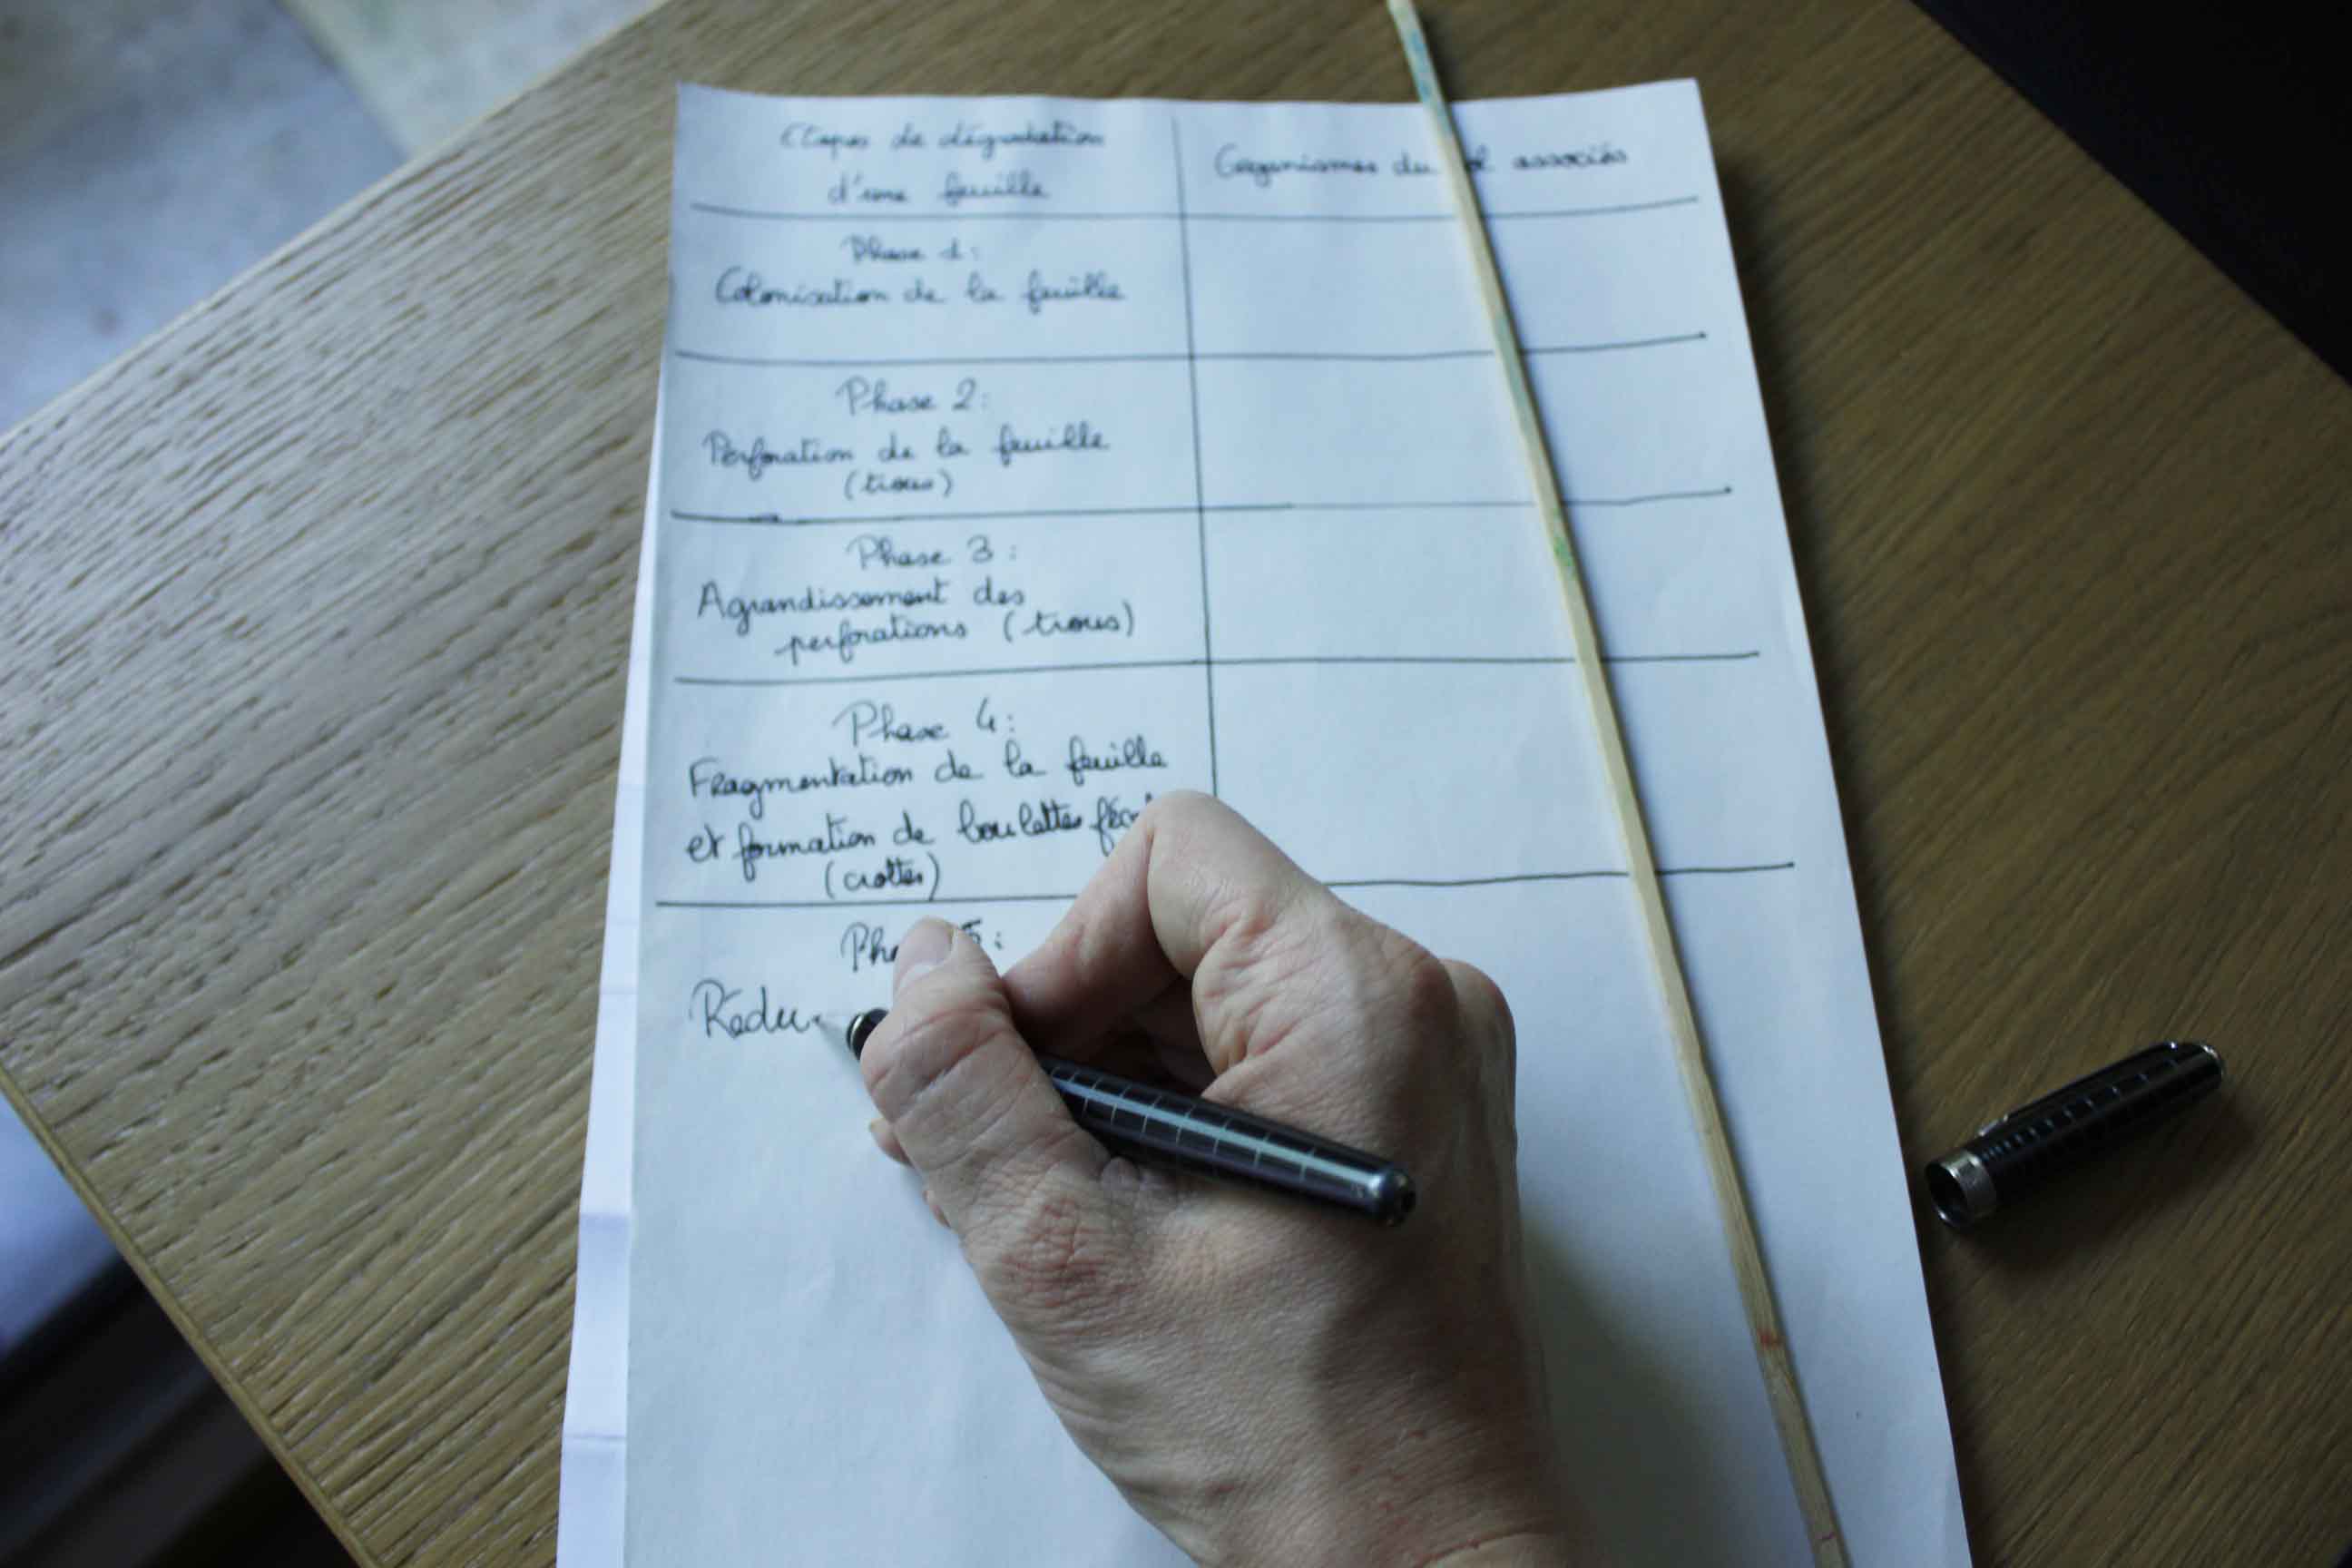 Etapes de dégradation
d'une feuille
Organismes du associés
Phase 1:
Colonisation de la feuille
Phase 2:
Perforation de la feuille
(trous)
Phase 3:
Agrandissement des
perforations (trous)
Phase 4:
Fragmentation de la feuille
et formation de boulettes
(crottes)
5:
Rédu